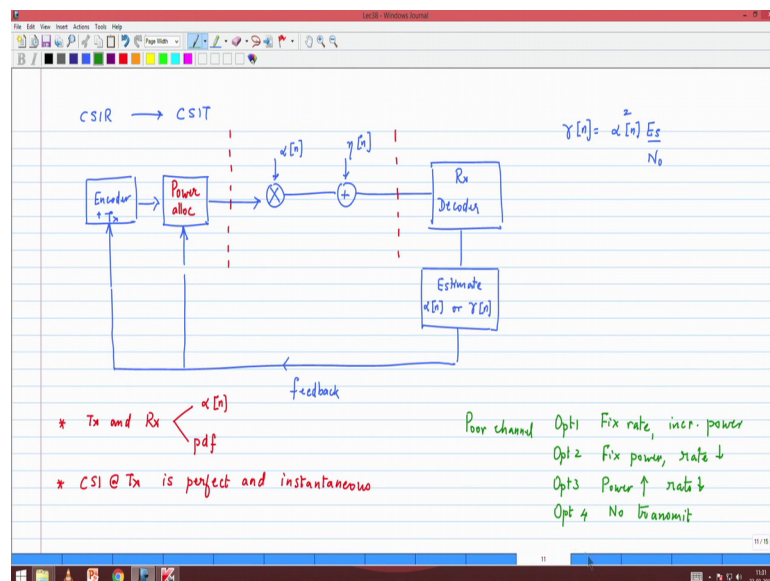 Lec38 - Windows Journal
File Edit View Insert Actions Tools Help
Page Width
B I
CSIR → CSIT
γ[n] = α²[n] Es
N₀
α[n]
η[n]
Encoder
+ Tx
Power
alloc
×
+
Rx
Decoder
Estimate
α[n] or γ[n]
feedback
* Tx and Rx
α[n]
pdf
* CSI @ Tx is perfect and instantaneous
Poor channel Opt1 Fix rate, incr. power
Opt 2 Fix power, rate ↓
Opt 3 Power ↑ rate ↓
Opt 4 No transmit
11 / 15
11
11:31